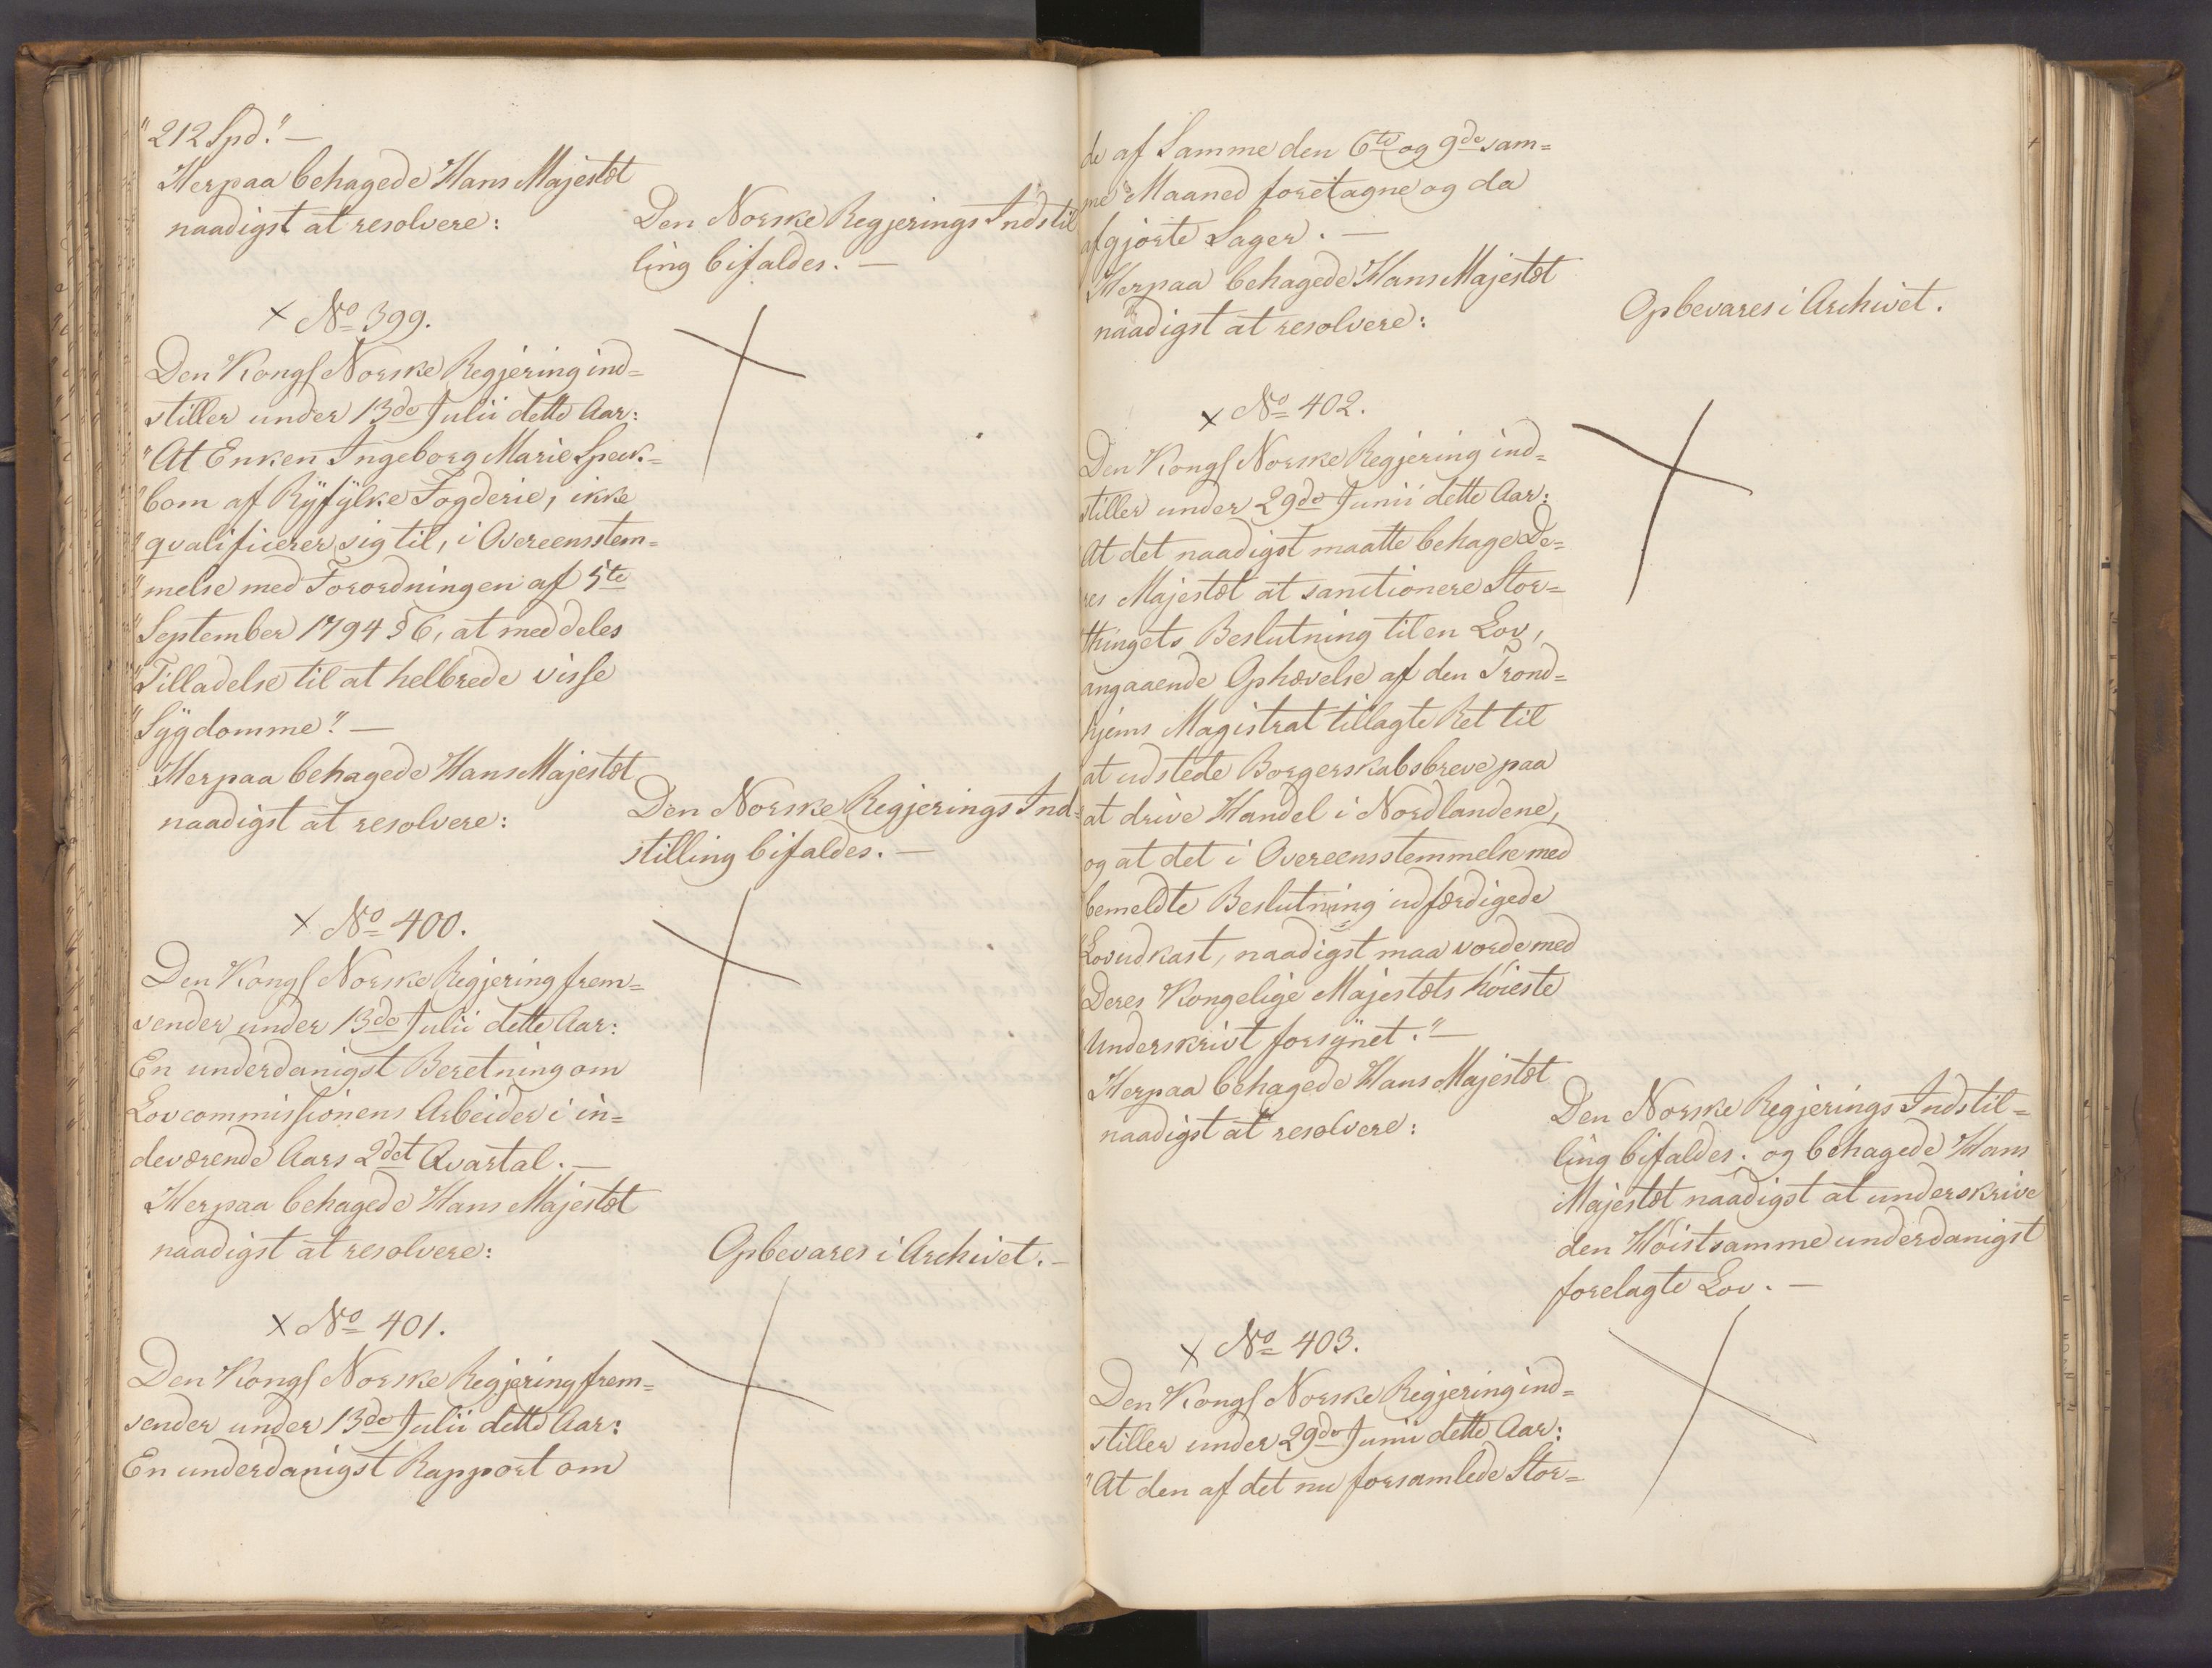 "212 Spd." —
Herpaa behagede Hans Majestæt
naadigst at resolvere:
Den Norske Regjerings Indstil
ling bifaldes. —
x No 399.
Den Kongl Norske Regjering ind=
stiller under 13de Julii dette Aar:
"At Enken Ingeborg Marie Speck=
"bom af Ryfylke Fogderie, ikke
"qvalificerer sig til, i Overeensstem=
"melse med Forordningen af 5te
"September 1794 § 6, at meddeles
"Tilladelse til at helbrede visse
"Sygdomme." —
Herpaa behagede Hans Majestæt
naadigst at resolvere:
Den Norske Regjerings Ind=
stilling bifaldes. —
x No 400.
Den Kongl Norske Regjering frem=
sender under 13de Julii dette Aar:
En underdanigst Beretning om
Lovcommissionens Arbeider i in=
deværende Aars 2det Qvartal. —
Herpaa behagede Hans Majestæt
naadigst at resolvere:
Opbevares i Archivet. —
x No 401.
Den Kongl Norske Regjering frem=
sender under 13de Julii dette Aar:
En underdanigst Rapport om
de af Samme den 6te og 9de sam=
me Maaned foretagne og da
afgjorte Sager. —
Herpaa behagede Hans Majestæt
naadigst at resolvere:
Opbevares i Archivet.
x No 402.
Den Kongl Norske Regjering ind=
stiller under 29de Junii dette Aar:
At det naadigst maatte behage De=
res Majestæt at sanctionere Stor=
thingets Beslutning til en Lov,
angaaende Ophævelse af den Trond=
hjems Magistrat tillagte Ret til
at udstede Borgerskabsbreve paa
at drive Handel i Nordlandene,
og at det i Overeensstemmelse med
bemeldte Beslutning udfærdigede
"Lovudkast, naadigst maa vorde med
"Deres Kongelige Majestæts høieste
"Underskrivt forsynet." —
Herpaa behagede Hans Majestæt
naadigst at resolvere:
Den Norske Regjerings Indstil=
ling bifaldes. og behagede Hans
Majestæt naadigst at underskrive
den Høistsamme underdanigst
forelagte Lov. —
x No 403.
Den Kongl Norske Regjering ind=
stiller under 29de Junii dette Aar:
"At den af det nu forsamlede Stor=